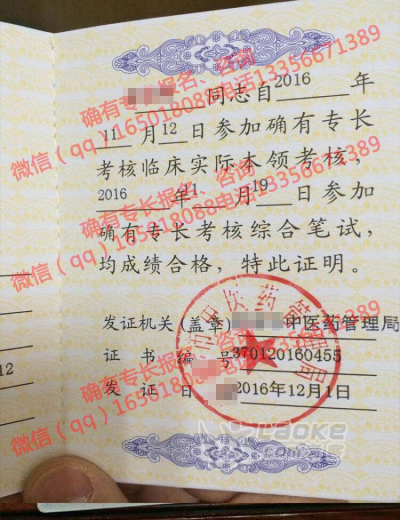 同志自2016年
11月12日参加确有专长
考核临床实际本领考核,
2016年11月19日参加
确有专长考核综合笔试,
均成绩合格,特此证明。
发证机关(盖章)中医药管理局
证书编号370120160455
发证日 2016年12月1日
市中医药管理局
12
确有专长报名、咨询
微信(qq)1650180888电话13356671389
确有专长报名、咨询
微信(qq)1650180888电话13356671389
确有专长报名、咨询
微信(qq)1650180888电话13356671389
LAOKE
.com